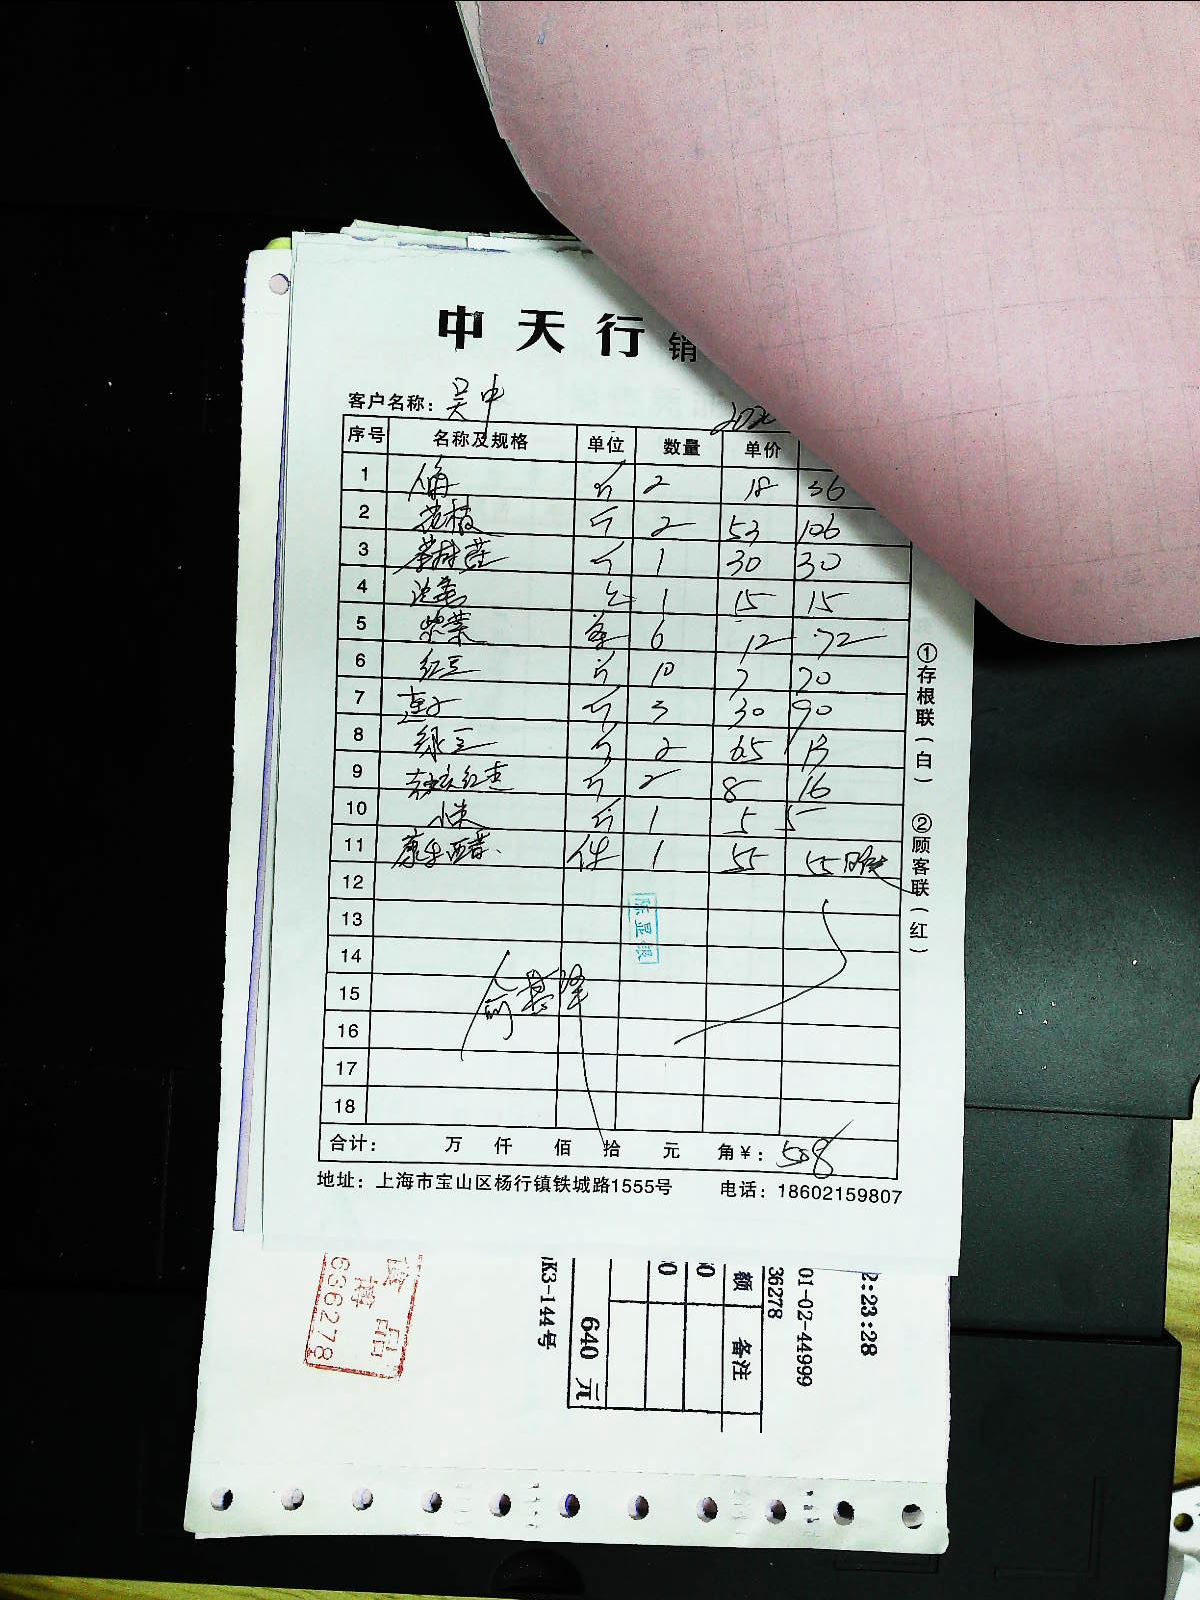 中天行 销
客户名称: 吴中
序号 名称及规格 单位 数量 单价
1 斤 2 18 36
2 斤 2 53 106
3 茶树菇 斤 1 30 30
4 1 15 15
5 紫菜 6 12 72
6 红豆 斤 10 7 70
7 莲子 斤 3 30 90
8 绿豆 斤 2 6.5 13
9 红枣 斤 2 8 16
10 斤 1 5 5
11 件 1 55 55
12
13
14
15
16
17
18
合计: 万 仟 佰 拾 元 角¥: 508
地址: 上海市宝山区杨行镇铁城路1555号 电话: 18602159807
①存根联(白) ②顾客联(红)
陈显银
2:23:28
01-02-44999
36278
额 备注
0
0
640 元
K3-144号
636278